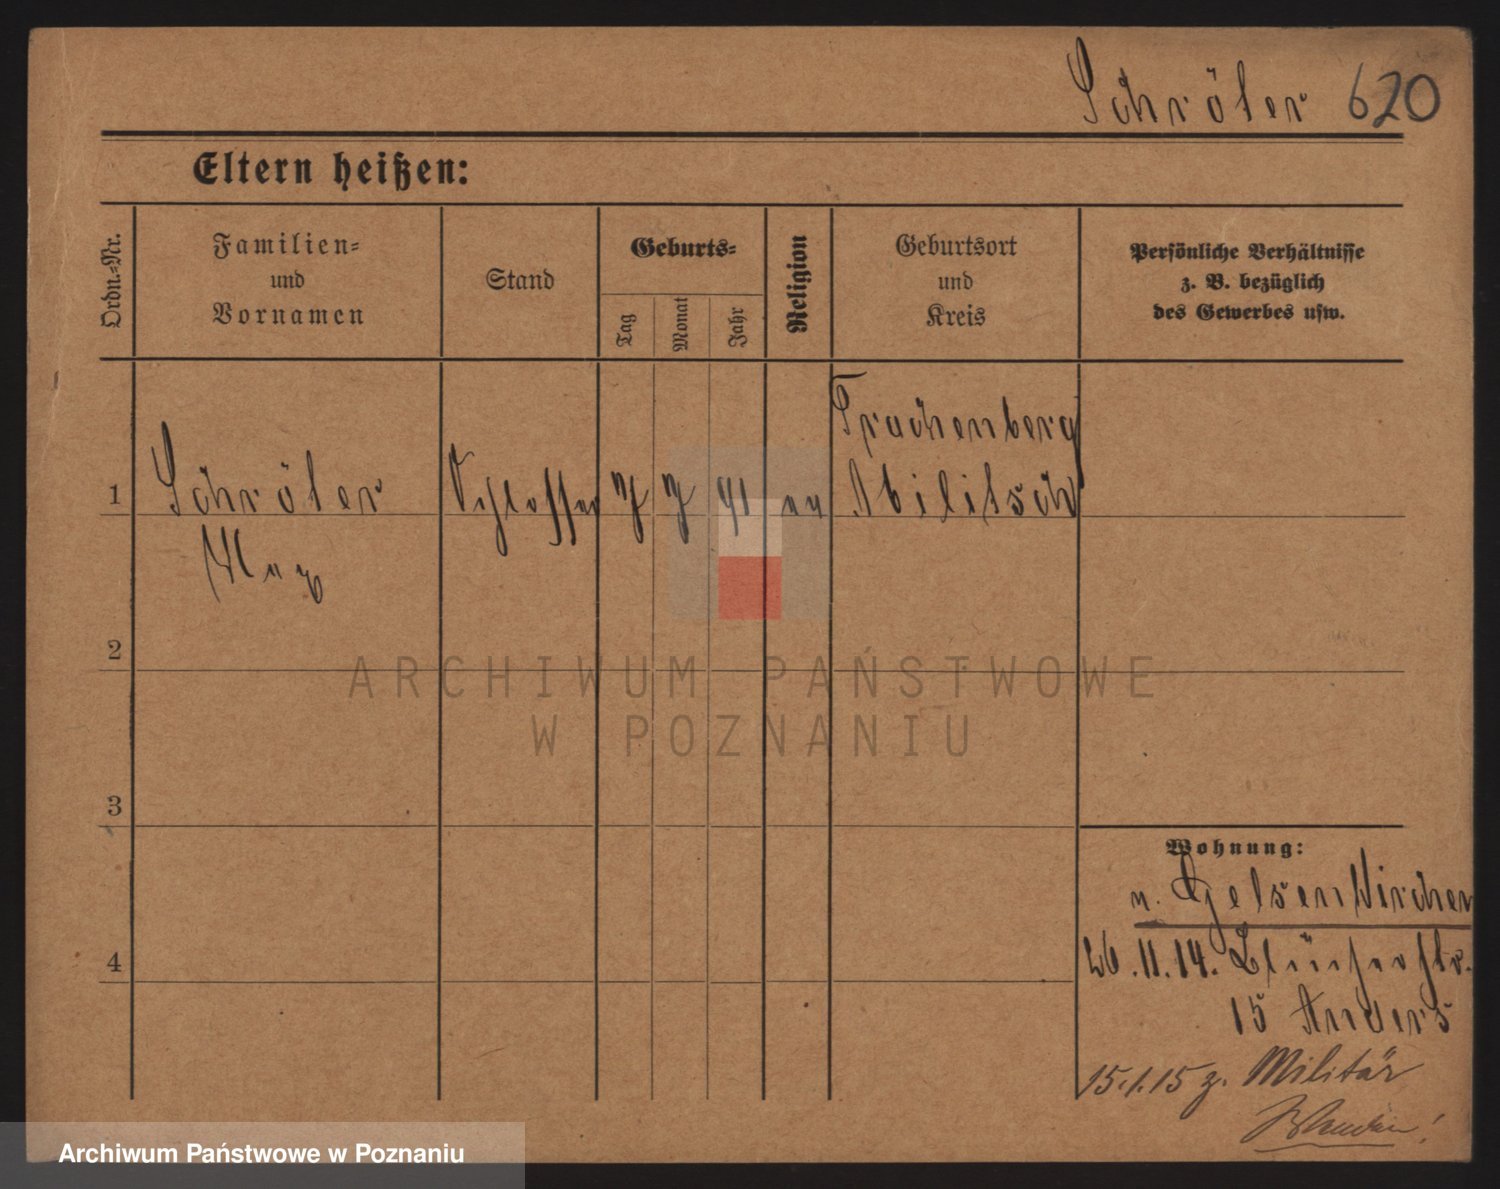 Schröter 620
Eltern heißen:
Ordn.-Nr.
Familien-
und
Vornamen
Stand
Geburts-
Tag
Monat
Jahr
Religion
Geburtsort
und
Kreis
Persönliche Verhältnisse
z. B. bezüglich
des Gewerbes usw.
Trachenberg
1 Schröter Schlosser 7 7 91 ev Militsch
Max
2
ARCHIWUM PAŃSTWOWE
W POZNANIU
3
Wohnung:
n. Gelsenkirchen
4
26.11.14. Blücherstr.
15 Anders
15.1.15 z. Militär
Archiwum Państwowe w Poznaniu